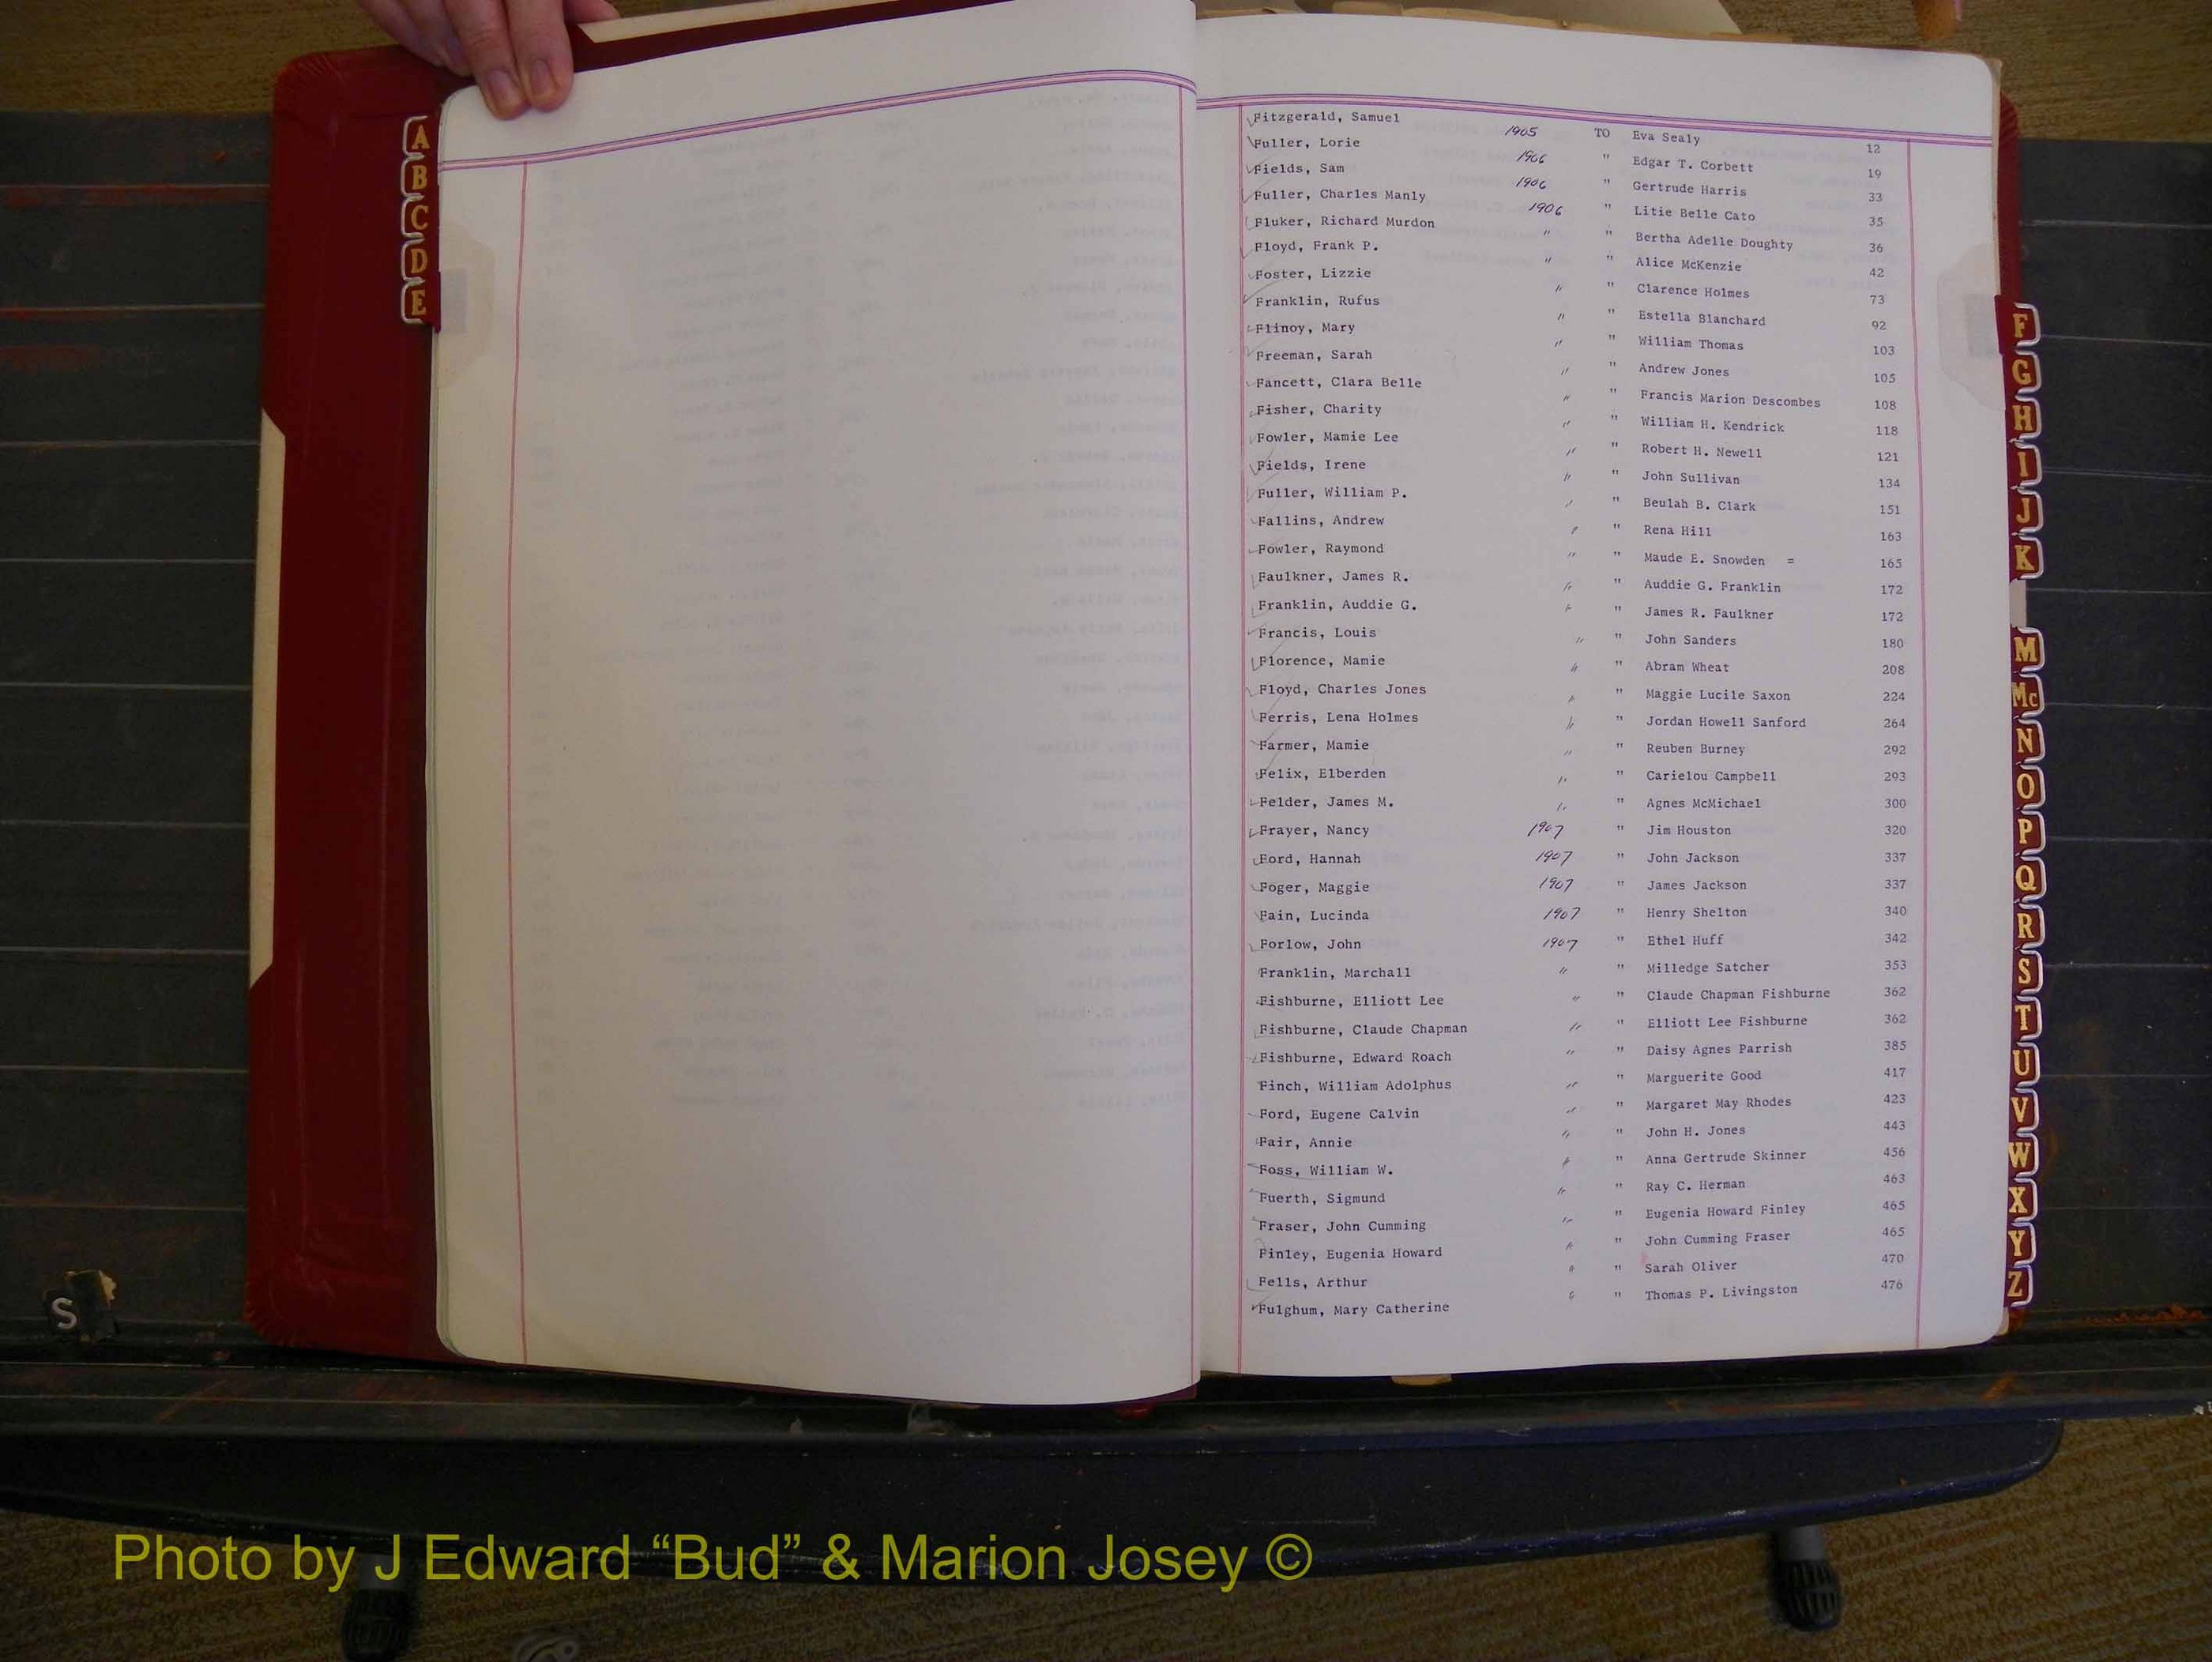 A
B
C
D
E
Fitzgerald, Samuel 1905 TO Eva Sealy 12
Fuller, Lorie 1906 " Edgar T. Corbett 19
Fields, Sam 1906 " Gertrude Harris 33
Fuller, Charles Manly 1906 " Litie Belle Cato 35
Fluker, Richard Murdon " " Bertha Adelle Doughty 36
Floyd, Frank P. " " Alice McKenzie 42
Foster, Lizzie " " Clarence Holmes 73
Franklin, Rufus " " Estella Blanchard 92
Flinoy, Mary " " William Thomas 103
Freeman, Sarah " " Andrew Jones 105
Fancett, Clara Belle " " Francis Marion Descombes 108
Fisher, Charity " " William H. Kendrick 118
Fowler, Mamie Lee " " Robert H. Newell 121
Fields, Irene " " John Sullivan 134
Fuller, William P. " " Beulah B. Clark 151
Fallins, Andrew " " Rena Hill 163
Fowler, Raymond " " Maude E. Snowden = 165
Faulkner, James R. " " Auddie G. Franklin 172
Franklin, Auddie G. " " James R. Faulkner 172
Francis, Louis " " John Sanders 180
Florence, Mamie " " Abram Wheat 208
Floyd, Charles Jones " " Maggie Lucile Saxon 224
Ferris, Lena Holmes " " Jordan Howell Sanford 264
Farmer, Mamie " " Reuben Burney 292
Felix, Elberden " " Carielou Campbell 293
Felder, James M. " " Agnes McMichael 300
Frayer, Nancy 1907 " Jim Houston 320
Ford, Hannah 1907 " John Jackson 337
Foger, Maggie 1907 " James Jackson 337
Fain, Lucinda 1907 " Henry Shelton 340
Forlow, John 1907 " Ethel Huff 342
Franklin, Marchall " " Milledge Satcher 353
Fishburne, Elliott Lee " " Claude Chapman Fishburne 362
Fishburne, Claude Chapman " " Elliott Lee Fishburne 362
Fishburne, Edward Roach " " Daisy Agnes Parrish 385
Finch, William Adolphus " " Marguerite Good 417
Ford, Eugene Calvin " " Margaret May Rhodes 423
Fair, Annie " " John H. Jones 443
Foss, William W. " " Anna Gertrude Skinner 456
Fuerth, Sigmund " " Ray C. Herman 463
Fraser, John Cumming " " Eugenia Howard Finley 465
Finley, Eugenia Howard " " John Cumming Fraser 465
Fells, Arthur " " Sarah Oliver 470
Fulghum, Mary Catherine " " Thomas P. Livingston 476
F
G
H
I
J
K
M
Mc
N
O
P
Q
R
S
T
U
V
W
X
Y
Z
S
Photo by J Edward “Bud” & Marion Josey ©